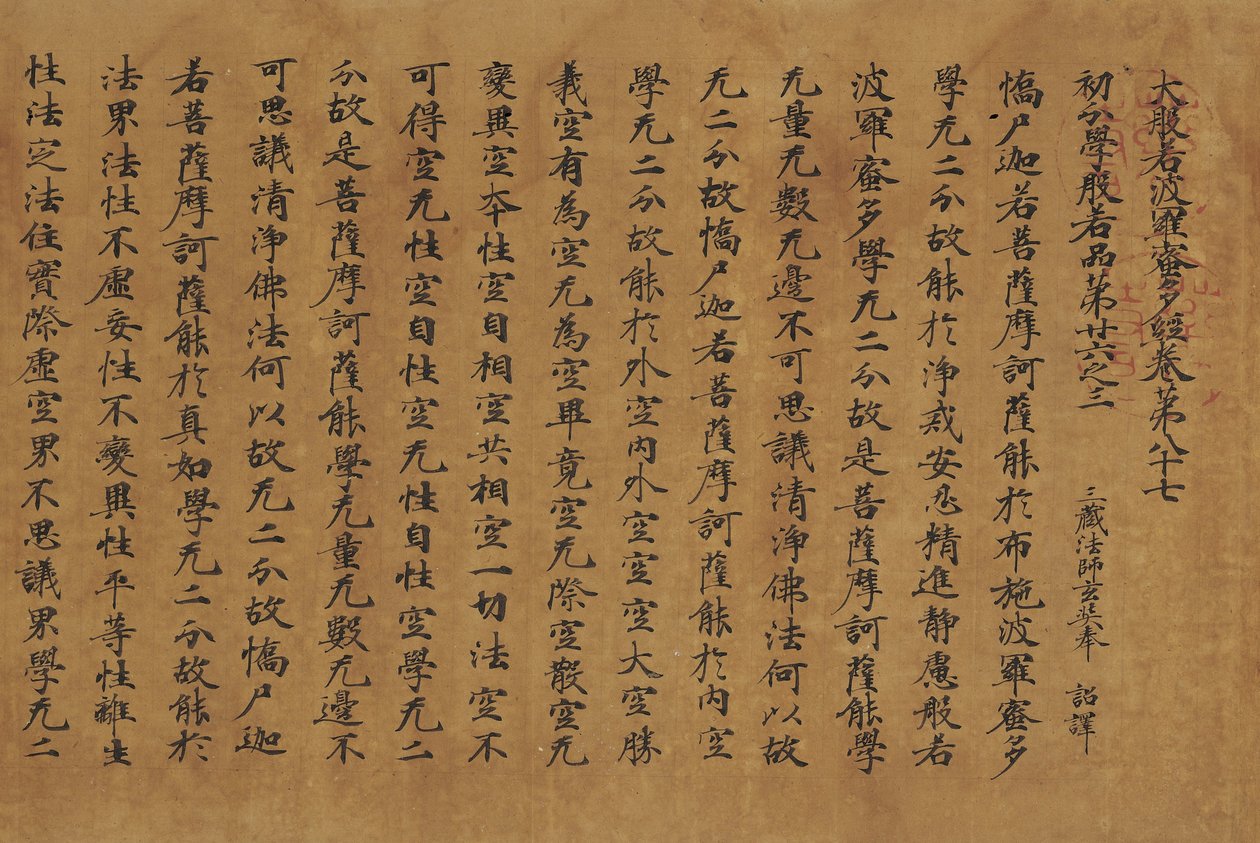 大般若波羅蜜多經卷第八十七
初分學般若品第廿六之三 三藏法師玄奘奉 詔譯
憍尸迦若菩薩摩訶薩能於布施波羅蜜多
學无二分故能於淨戒安忍精進静慮般若
波羅蜜多學无二分故是菩薩摩訶薩能學
无量无數无邊不可思議清淨佛法何以故
无二分故憍尸迦若菩薩摩訶薩能於内空
學无二分故能於外空内外空空空大空勝
義空有為空无為空畢竟空无際空散空无
變異空本性空自相空共相空一切法空不
可得空无性空自性空无性自性空學无二
分故是菩薩摩訶薩能學无量无數无邊不
可思議清淨佛法何以故无二分故憍尸迦
若菩薩摩訶薩能於真如學无二分故能於
法界法性不虛妄性不變異性平等性離生
性法定法住實際虛空界不思議界學无二